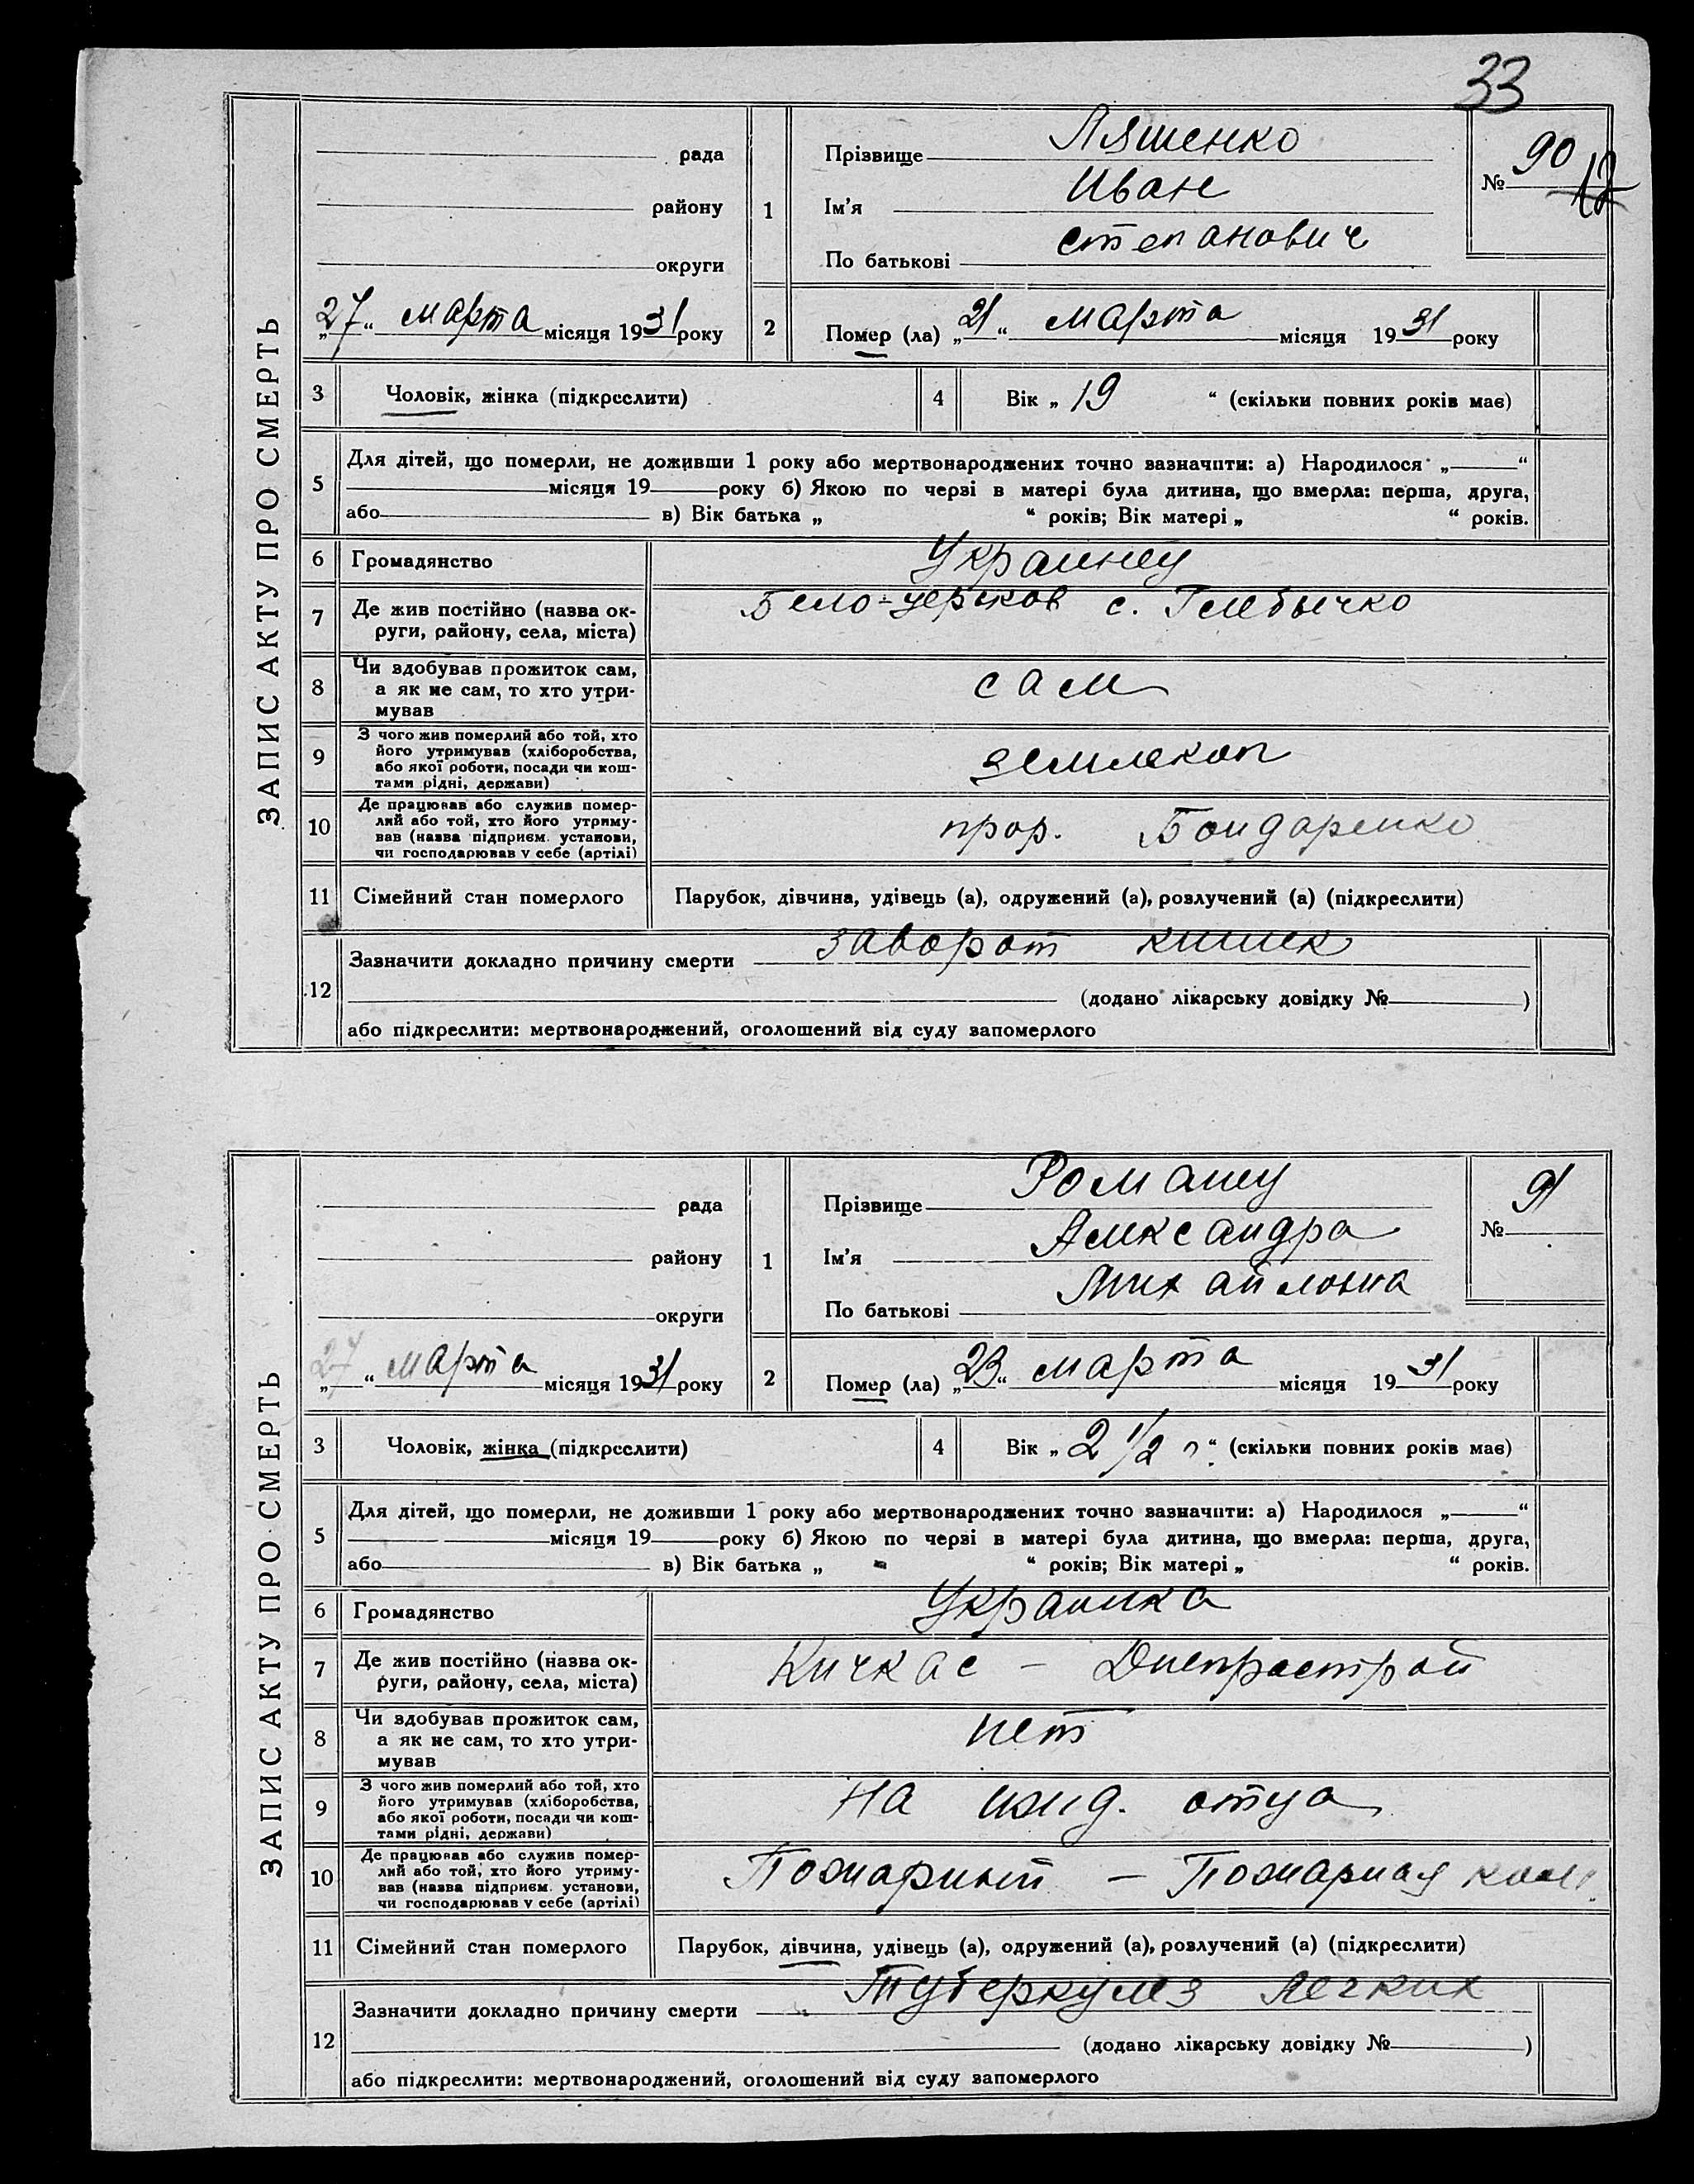 33
ЗАПИС АКТУ ПРО СМЕРТЬ
рада
району
округи
„27“ марта місяця 1931 року
1
Прізвище Ляшенко
Ім’я Иван
По батькові Степанович
№ 90
17
2
Помер (ла) „21“ марта місяця 1931 року
3 Чоловік, жінка (підкреслити)
4 Вік „19“ (скільки повних років має)
5
Для дітей, що померли, не доживши 1 року або мертвонароджених точно зазначити: а) Народилося „ “
місяця 19 року б) Якою по черзі в матері була дитина, що вмерла: перша, друга,
або в) Вік батька „ “ років; Вік матері „ “ років.
6 Громадянство Украинец
7 Де жив постійно (назва ок-
руги, району, села, міста)
Бело-церков с.
8 Чи здобував прожиток сам,
а як не сам, то хто утри-
мував
сам
9 З чого жив померлий або той, хто
його утримував (хліборобства,
або якої роботи, посади чи кош-
тами рідні, держави)
землекоп
10 Де працював або служив помер-
лий або той, хто його утриму-
вав (назва підприєм. установи,
чи господарював у себе (артілі)
прор. Бондаренко
11 Сімейний стан померлого Парубок, дівчина, удівець (а), одружений (а), розлучений (а) (підкреслити)
12
Зазначити докладно причину смерти заворот кишек
(додано лікарську довідку № )
або підкреслити: мертвонароджений, оголошений від суду запомерлого
ЗАПИС АКТУ ПРО СМЕРТЬ
рада
району
округи
„27“ марта місяця 1931 року
1
Прізвище Романец
Ім’я Александра
По батькові Михайловна
№ 91
2
Помер (ла) „23“ марта місяця 1931 року
3 Чоловік, жінка (підкреслити)
4 Вік „2 1/2 г.“ (скільки повних років має)
5
Для дітей, що померли, не доживши 1 року або мертвонароджених точно зазначити: а) Народилося „ “
місяця 19 року б) Якою по черзі в матері була дитина, що вмерла: перша, друга,
або в) Вік батька „ - “ років; Вік матері „ “ років.
6 Громадянство Украинка
7 Де жив постійно (назва ок-
руги, району, села, міста)
Кичкас - Днепрострой
8 Чи здобував прожиток сам,
а як не сам, то хто утри-
мував
нет
9 З чого жив померлий або той, хто
його утримував (хліборобства,
або якої роботи, посади чи кош-
тами рідні, держави)
На ижд. отца
10 Де працював або служив помер-
лий або той, хто його утриму-
вав (назва підприєм. установи,
чи господарював у себе (артілі)
Пожарный - Пожарная ком.
11 Сімейний стан померлого Парубок, дівчина, удівець (а), одружений (а), розлучений (а) (підкреслити)
12
Зазначити докладно причину смерти Туберкулез легких
(додано лікарську довідку № )
або підкреслити: мертвонароджений, оголошений від суду запомерлого